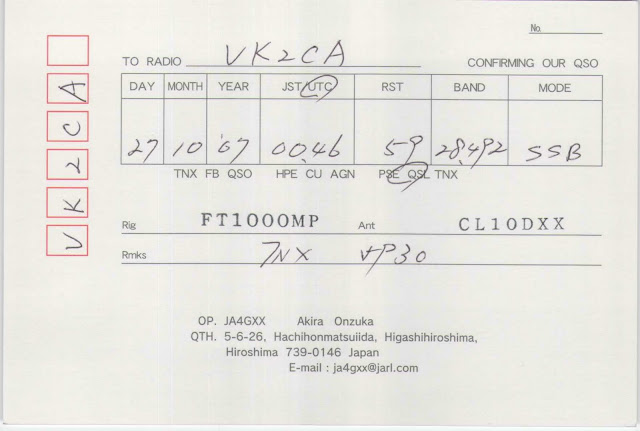 No.
TO RADIO VK2CA CONFIRMING OUR QSO
DAY MONTH YEAR JST UTC RST BAND MODE
27 10 '07 00.46 59 28.492 SSB
TNX FB QSO HPE CU AGN PSE QSL TNX
Rig FT1000MP Ant CL10DXX
Rmks TNX VP30
OP. JA4GXX Akira Onzuka
QTH. 5-6-26, Hachihonmatsuiida, Higashihiroshima,
Hiroshima 739-0146 Japan
E-mail : ja4gxx@jarl.com
VK2CA